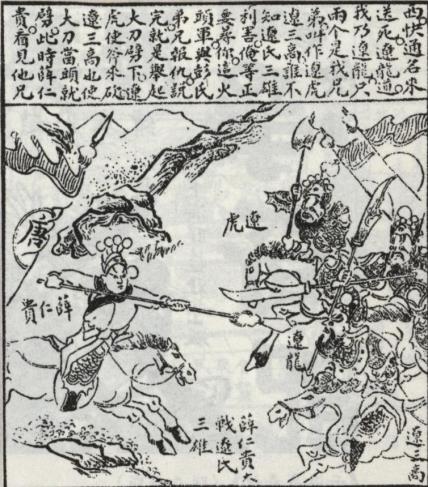 通名來
送死遼龍道
我乃遼龍只
兩个是我兄
弟叫作遼虎
遼三高誰不
知遼氏三雄
利害俺等正
要尋你這火
頭軍與彭氏
弟兄報仇説
完就是舉起
大刀劈下遼
虎使斧來砍
遼三高也使
大刀當頭就
劈此時薛仁
貴看見他兄
遼虎
唐
薛仁貴
遼龍
遼三高
薛仁貴大
戰遼氏
三雄